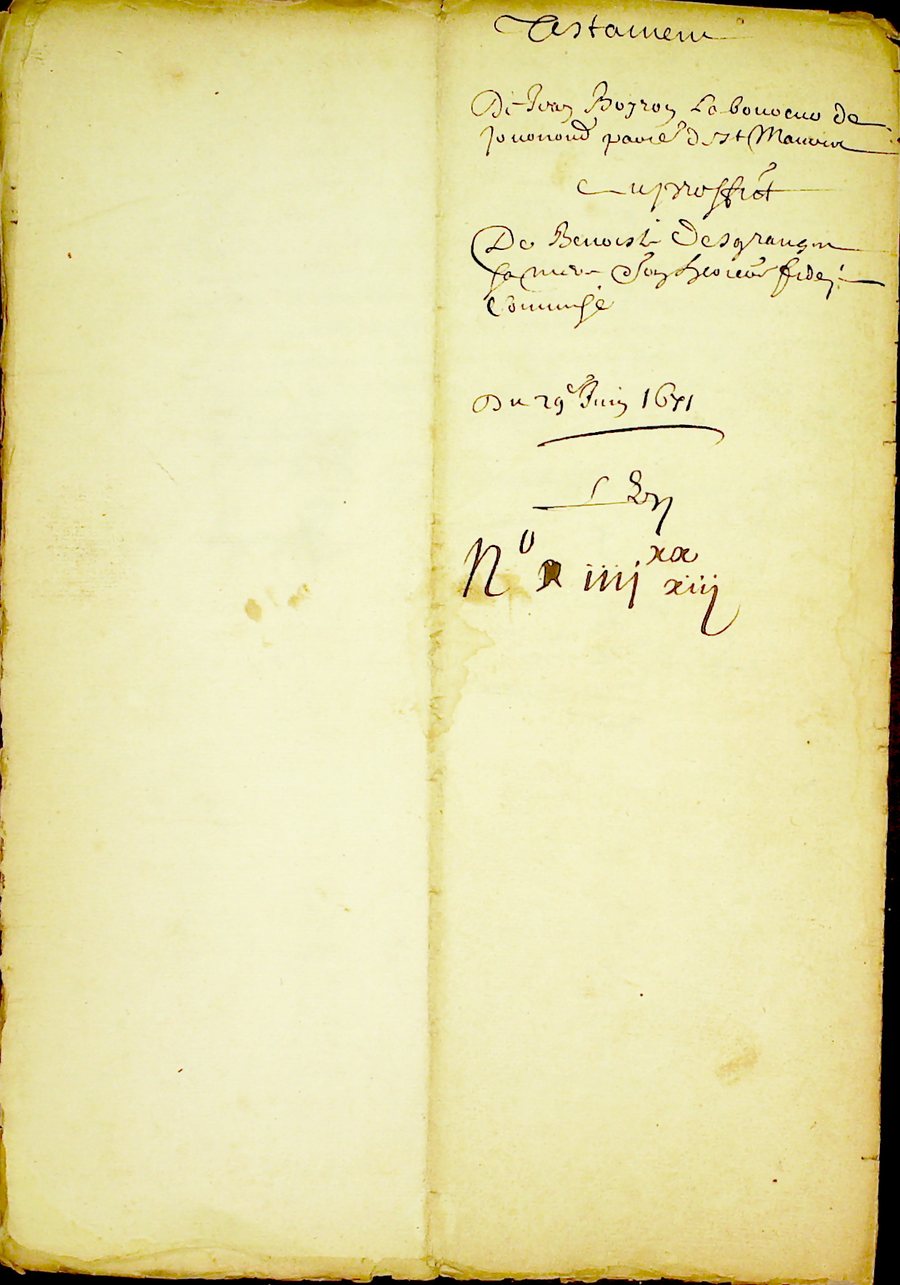 Testament
De Jean Boyron Laboureur de
parr d St Maurice
Au proffict
De Benoiste Desgranges
sa mere Son heritiere fidei
Commise
Du 29e Juin 1671
No iiijxx xiij